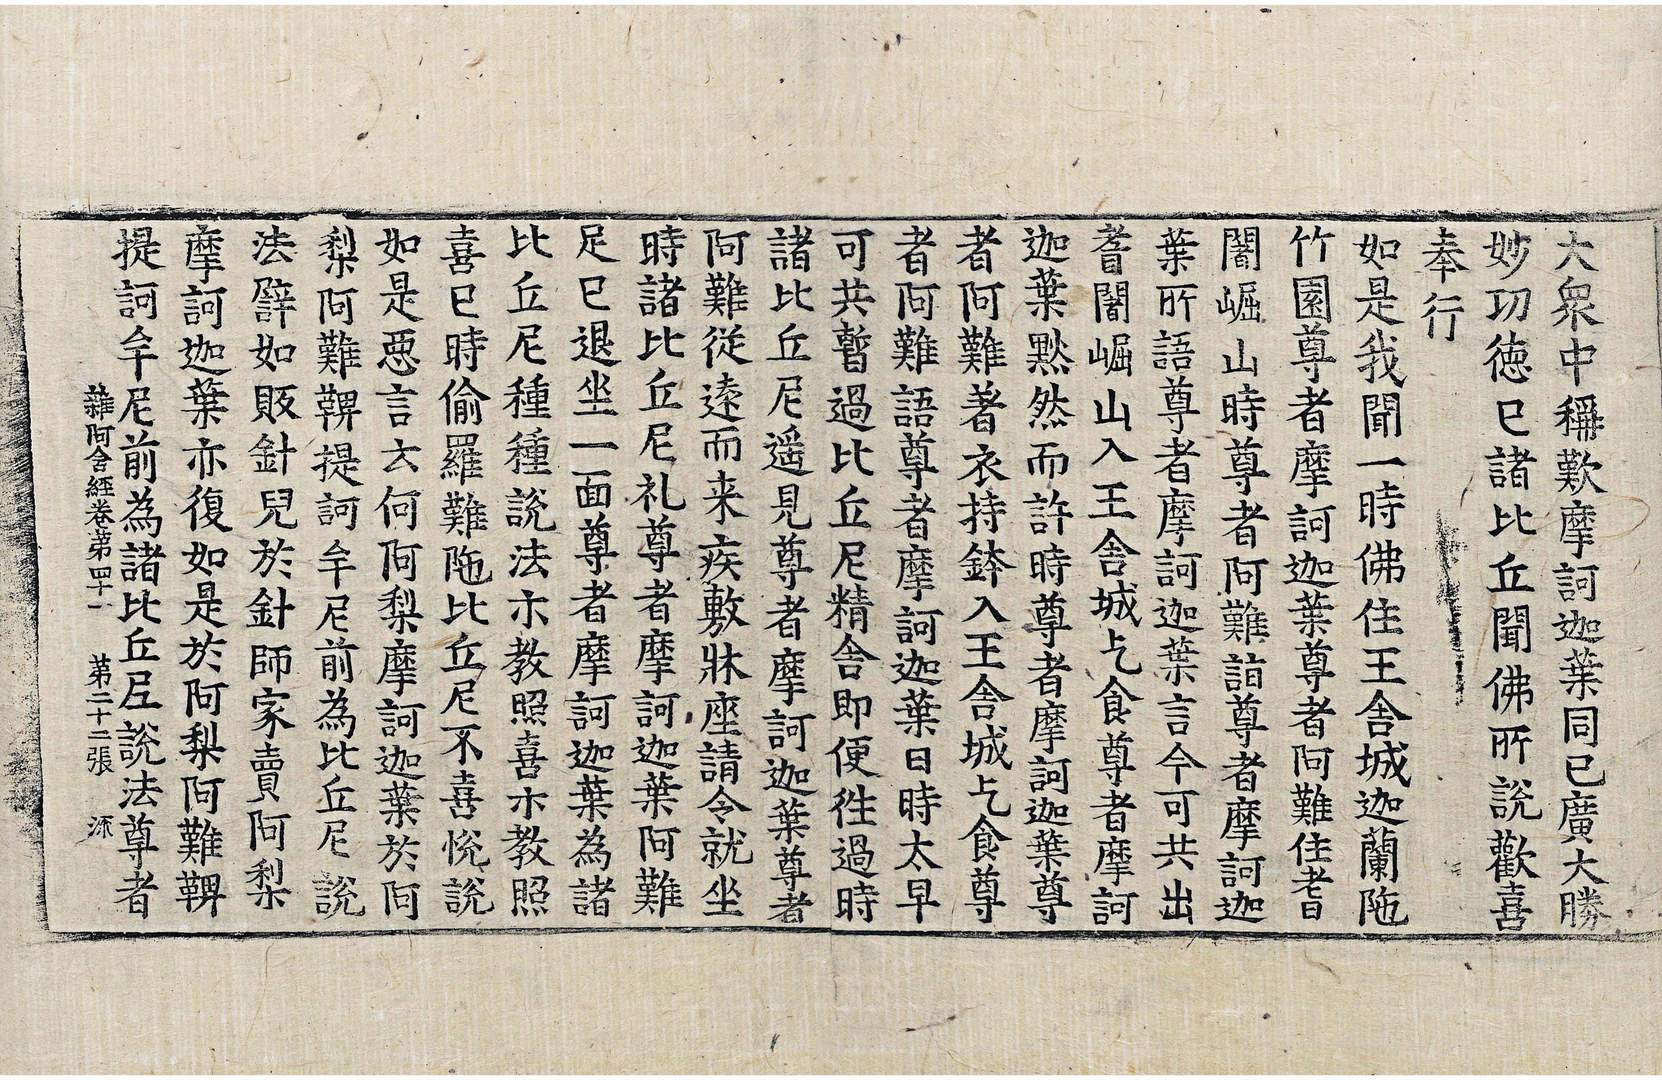 大衆中稱歎摩訶迦葉同已廣大勝
妙功徳已諸比丘聞佛所說歡喜
奉行
如是我聞一時佛住王舎城迦蘭陁
竹園尊者摩訶迦葉尊者阿難住耆
闍崛山時尊者阿難詣尊者摩訶迦
葉所語尊者摩訶迦葉言今可共出
耆闍崛山入王舎城乞食尊者摩訶
迦葉黙然而許時尊者摩訶迦葉尊
者阿難著衣持鉢入王舎城乞食尊
者阿難語尊者摩訶迦葉日時太早
可共暫過比丘尼精舎即便徃過時
諸比丘尼遥見尊者摩訶迦葉尊者
阿難従遠而来疾敷牀座請令就坐
時諸比丘尼礼尊者摩訶迦葉阿難
足已退坐一面尊者摩訶迦葉為諸
比丘尼種種說法示教照喜示教照
喜已時偷羅難陁比丘尼不喜恱說
如是惡言云何阿梨摩訶迦葉於阿
梨阿難鞞提訶牟尼前為比丘尼說
法譬如販針兒於針師家賣阿梨
摩訶迦葉亦復如是於阿梨阿難鞞
提訶牟尼前為諸比丘尼說法尊者
雜阿含經卷第四十一 第二十二張 㴑